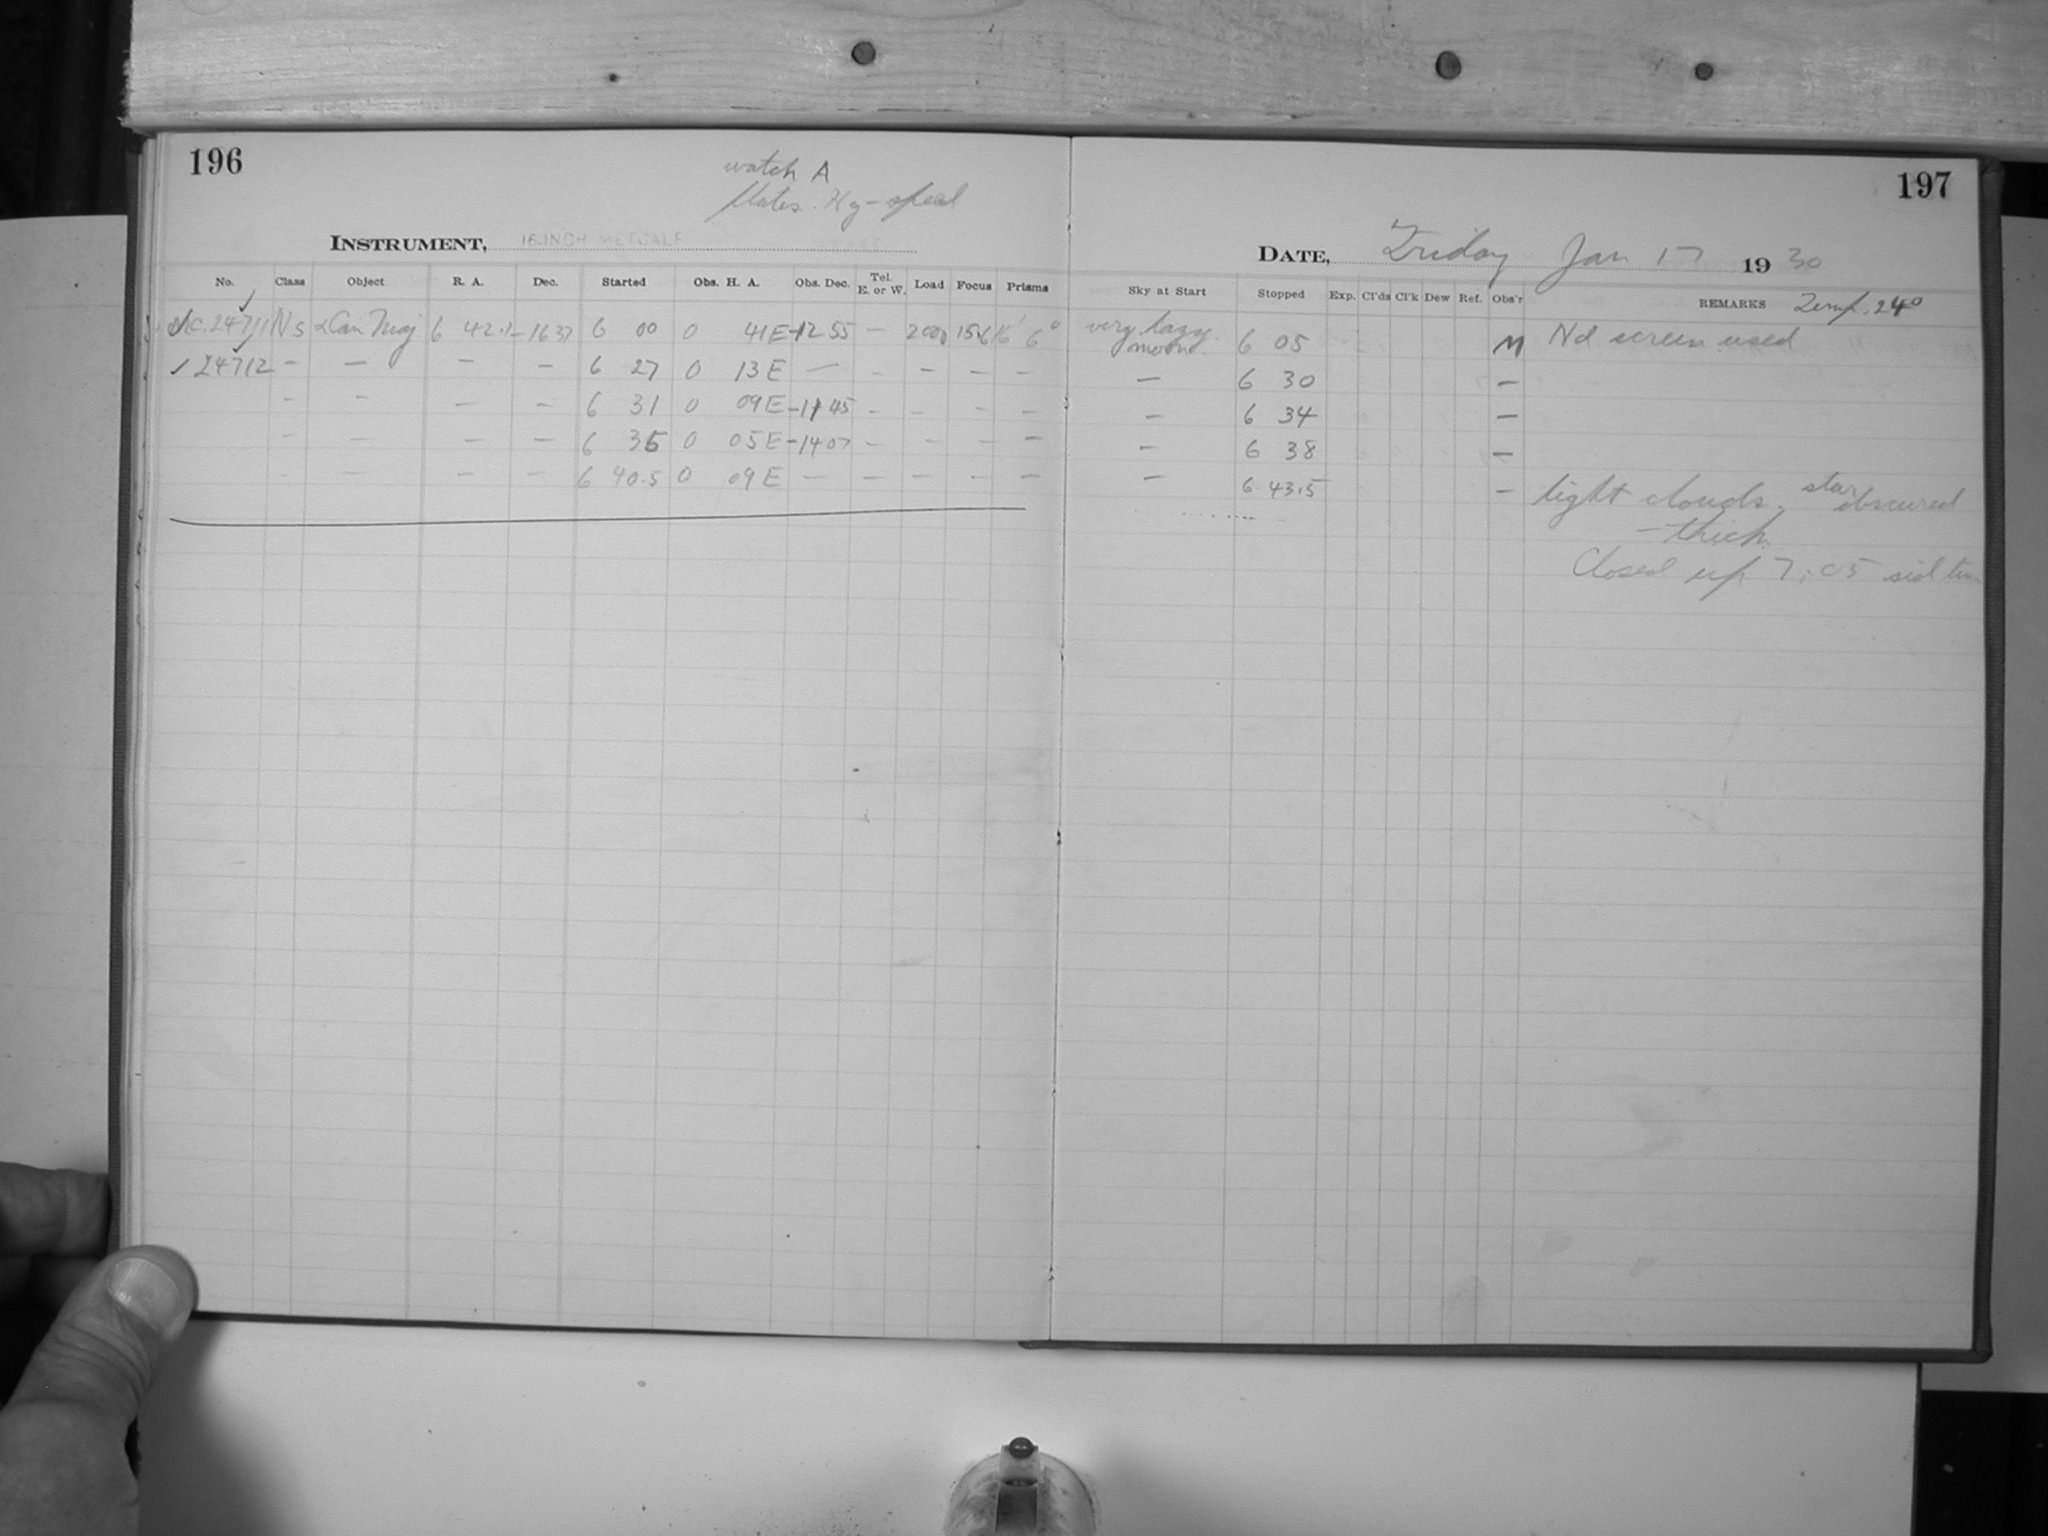 196
watch A
Plates. Hy-speed
INSTRUMENT, 16-INCH METCALF
No. Class Object R. A. Dec. Started Obs. H. A. Obs. Dec. Tel. E. or W. Load Focus Prisms
24711 NS α Can Maj. 6 42.1 -16 37 6 00 0 41 E -12 55 — 2000 15.6 6°
24712 — — — — 6 27 0 13 E — — — — —
— — — — 6 31 0 09 E -11 45 — — — —
— — — — 6 35 0 05 E -14 07 — — — —
— — — — 6 40.5 0 09 E — — — — —
197
DATE, Friday Jan 17 1930
Sky at Start Stopped Exp. Cl'ds Cl'k Dew Ref. Obs'r REMARKS Temp. 24°
very hazy moon 6 05 M Nd screen used
— 6 30 —
— 6 34 —
— 6 38 —
— 6 43.5 — light clouds. star obscured
— thick
Closed up 7:05 sid